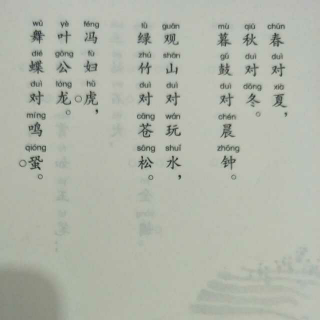 chūn duì xià
春对夏，
qiū duì dōng
秋对冬。
mù gǔ duì chén zhōng
暮鼓对晨钟。
guān shān duì wán shuǐ
观山对玩水，
lǜ zhú duì cāng sōng
绿竹对苍松。
féng fù hǔ
冯妇虎，
yè gōng lóng
叶公龙。
wǔ dié duì míng qióng
舞蝶对鸣蛩。